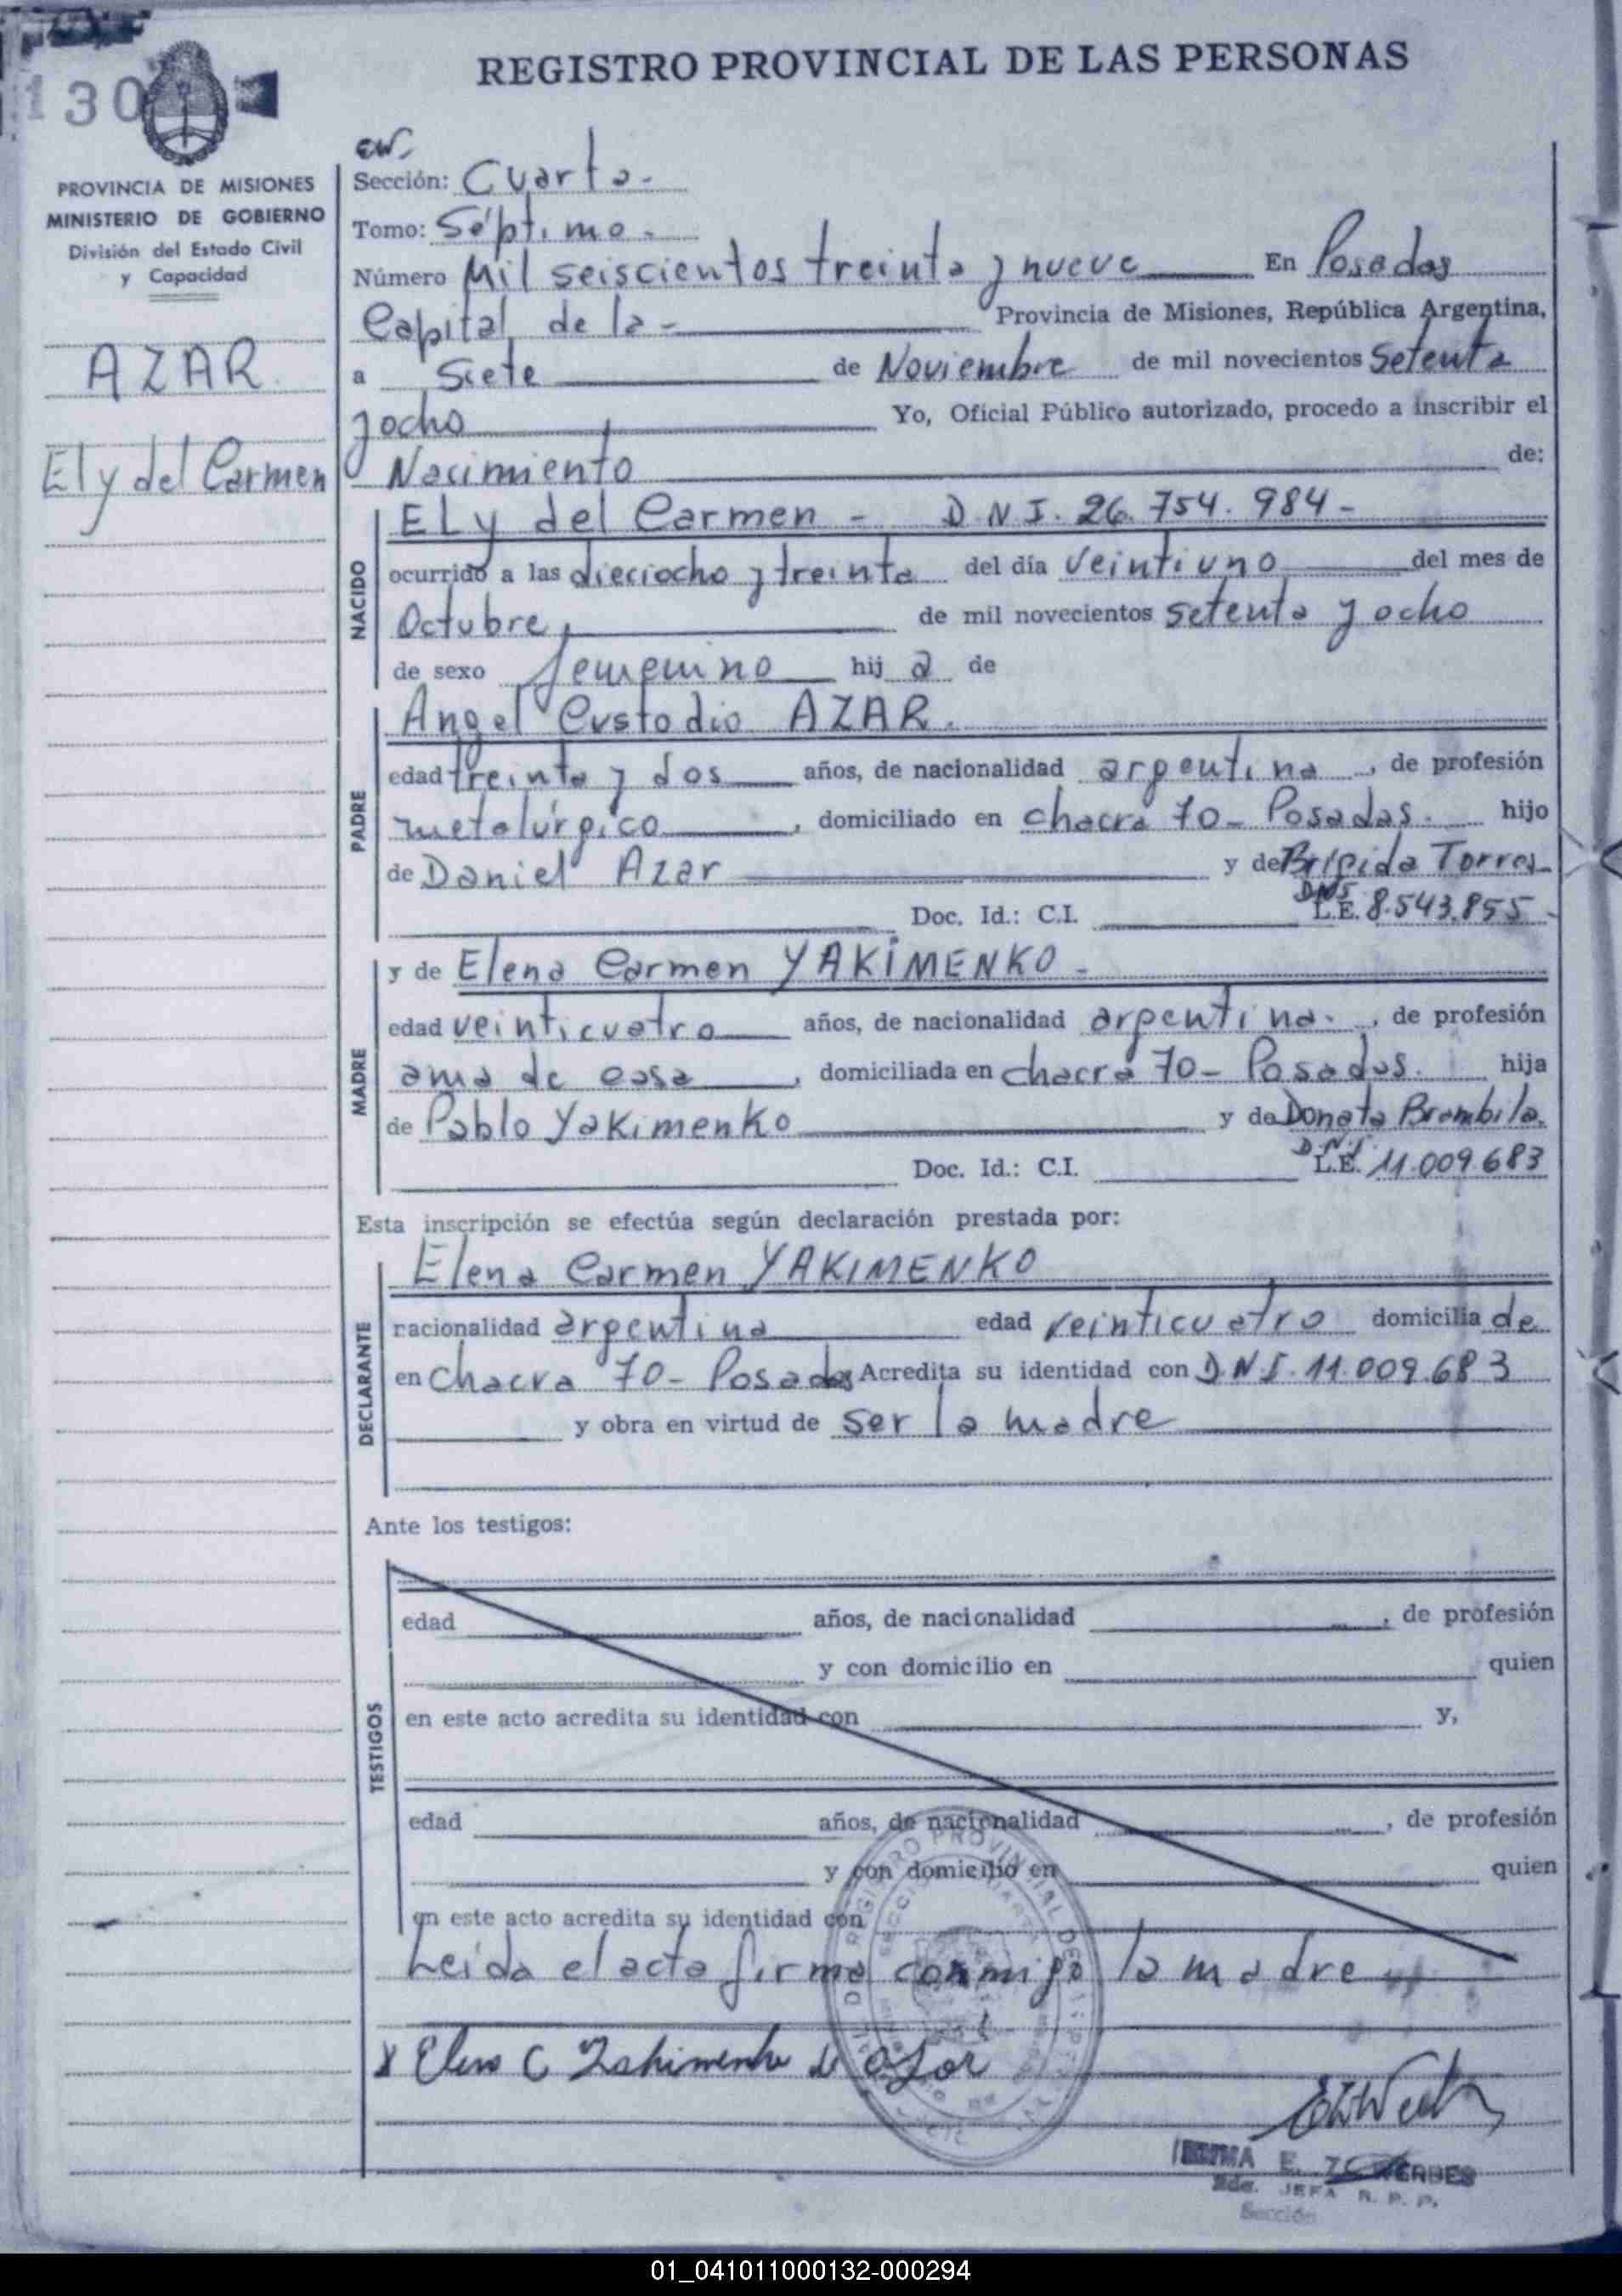 130
REGISTRO PROVINCIAL DE LAS PERSONAS
PROVINCIA DE MISIONES
MINISTERIO DE GOBIERNO
División del Estado Civil
y Capacidad
AZAR
Ely del Carmen
Sección: Cuarta.-
Tomo: Séptimo.-
Número Mil seiscientos treinta y nueve En Posadas
Capital de la - Provincia de Misiones, República Argentina,
a Siete de Noviembre de mil novecientos setenta
y ocho Yo, Oficial Público autorizado, procedo a inscribir el
Nacimiento de:
NACIDO
Ely del Carmen - D.N.I. 26.754.984-
ocurrido a las dieciocho y treinta del día veintiuno del mes de
Octubre, de mil novecientos setenta y ocho
de sexo femenino hij a de
PADRE
Angel Custodio AZAR.
edad treinta y dos años, de nacionalidad argentina , de profesión
metalúrgico , domiciliado en chacra 70- Posadas. hijo
de Daniel Azar y de Brígida Torres
Doc. Id.: C.I. DNI L.E. 8.543.855-
MADRE
y de Elena Carmen YAKIMENKO -
edad veinticuatro años, de nacionalidad argentina. , de profesión
ama de casa , domiciliada en chacra 70- Posadas. hija
de Pablo Yakimenko y de Donata Brambila.
Doc. Id.: C.I. D.N.I. L.E. 11.009.683
Esta inscripción se efectúa según declaración prestada por:
DECLARANTE
Elena Carmen YAKIMENKO
nacionalidad argentina edad veinticuatro domicilia de
en Chacra 70- Posadas Acredita su identidad con D.N.I. 11.009.683
y obra en virtud de ser la madre
Ante los testigos:
TESTIGOS
edad años, de nacionalidad , de profesión
y con domicilio en quien
en este acto acredita su identidad con y,
edad años, de nacionalidad , de profesión
y con domicilio en quien
en este acto acredita su identidad con
Leída el acta firma conmigo la madre
x Elena C Yakimenko de Azar
JEFA R. P. P.
Sección
01_041011000132-000294